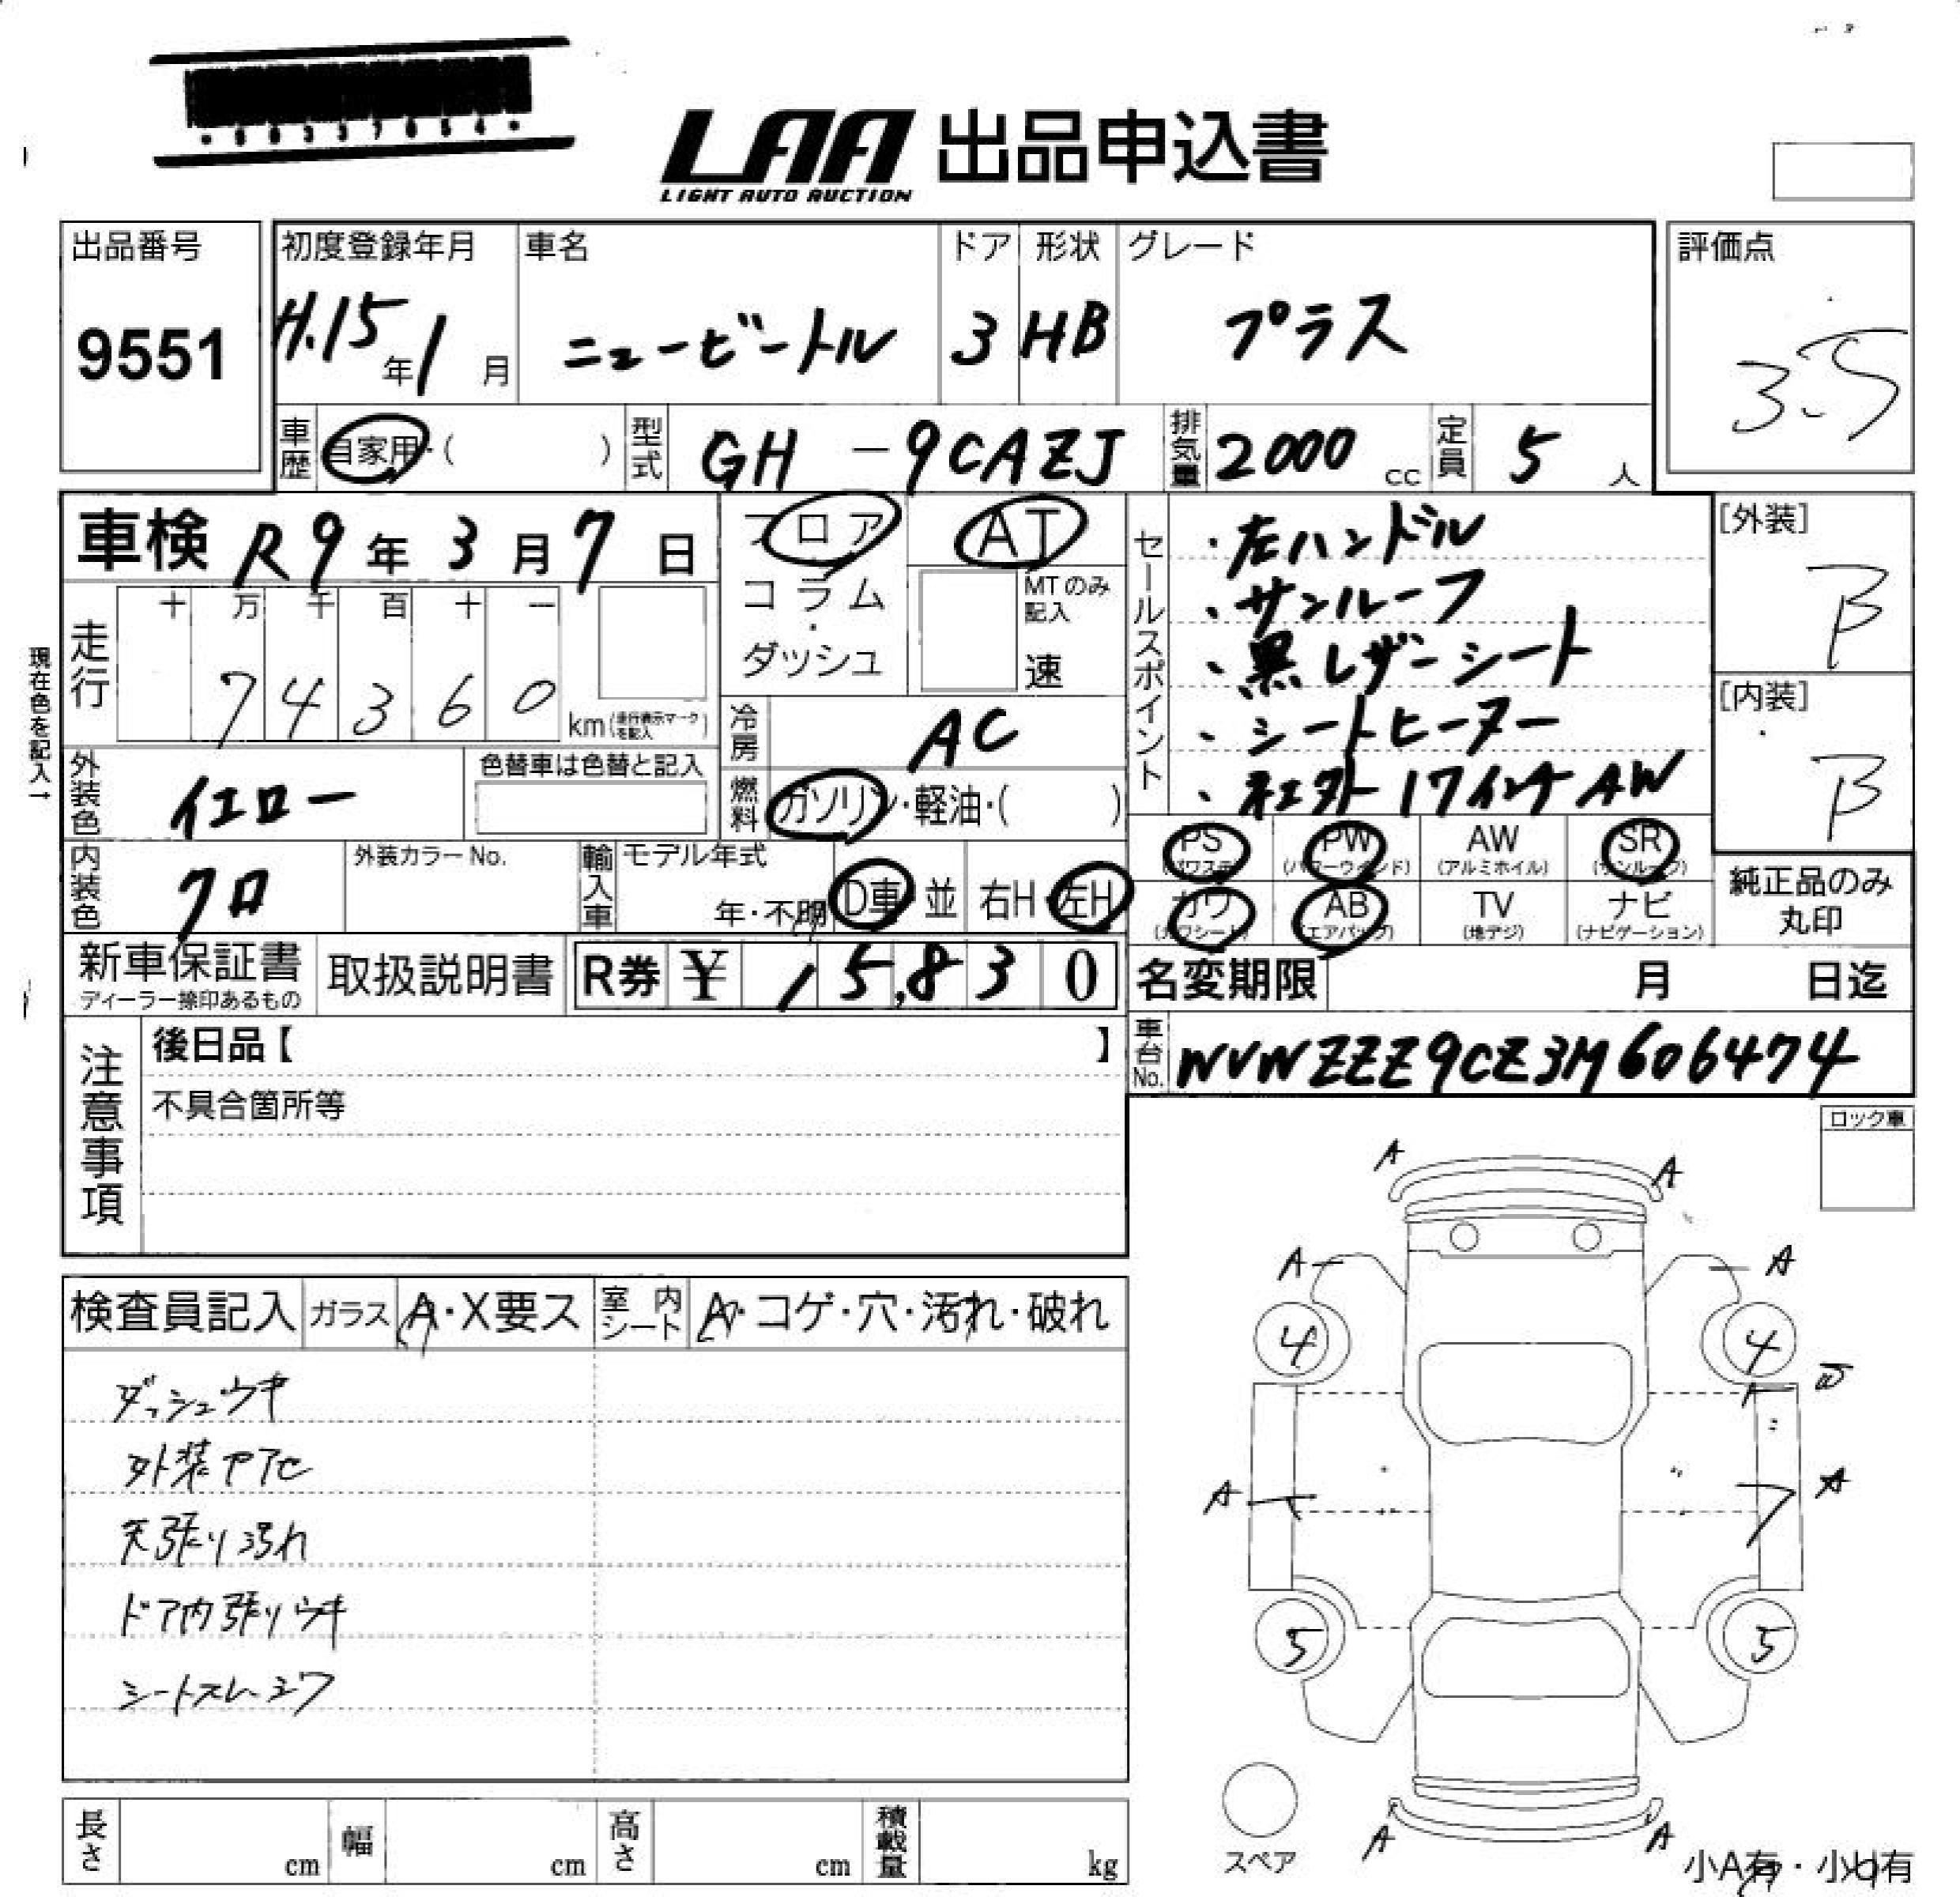 LAA 出品申込書
LIGHT AUTO AUCTION
出品番号
9551
初度登録年月
H.15年1月
車名
ニュービートル
ドア
3
形状
HB
グレード
プラス
評価点
3.5
車歴 自家用・( )
型式 GH-9CAZJ
排気量 2000 cc
定員 5 人
車検 R9年3月7日
現在色を記入→
走行
十 万 千 百 十 一
7 4 3 6 0
km(走行表示マークを記入)
フロア
コラム
・
ダッシュ
AT
MTのみ記入
速
冷房 AC
燃料 ガソリン・軽油・( )
セールスポイント
・左ハンドル
・サンルーフ
・黒レザーシート
・シートヒーター
・社外17インチAW
[外装]
B
[内装]
B
外装色 イエロー
色替車は色替と記入
内装色 クロ
外装カラーNo.
輸入車 モデル年式
年・不明
D車・並
右H・左H
PS (パワステ)
PW (パワーウインド)
AW (アルミホイル)
SR (サンルーフ)
カワ (カワシート)
AB (エアバッグ)
TV (地デジ)
ナビ (ナビゲーション)
純正品のみ
丸印
新車保証書
ディーラー捺印あるもの
取扱説明書
R券 ¥ 15,830
名変期限 月 日迄
車台No. WVWZZZ9CZ3M606474
注意事項
後日品【 】
不具合箇所等
ロック車
検査員記入
ガラス A・X要ス
室内シート A・コゲ・穴・汚れ・破れ
ダッシュウキ
外装ヤアセ
天張り汚れ
ドア内張りウキ
シートスレ・シワ
A
A
A
A
4
4
A
A
5
5
A
A
スペア
小A有・小U有
長さ cm
幅 cm
高さ cm
積載量 kg